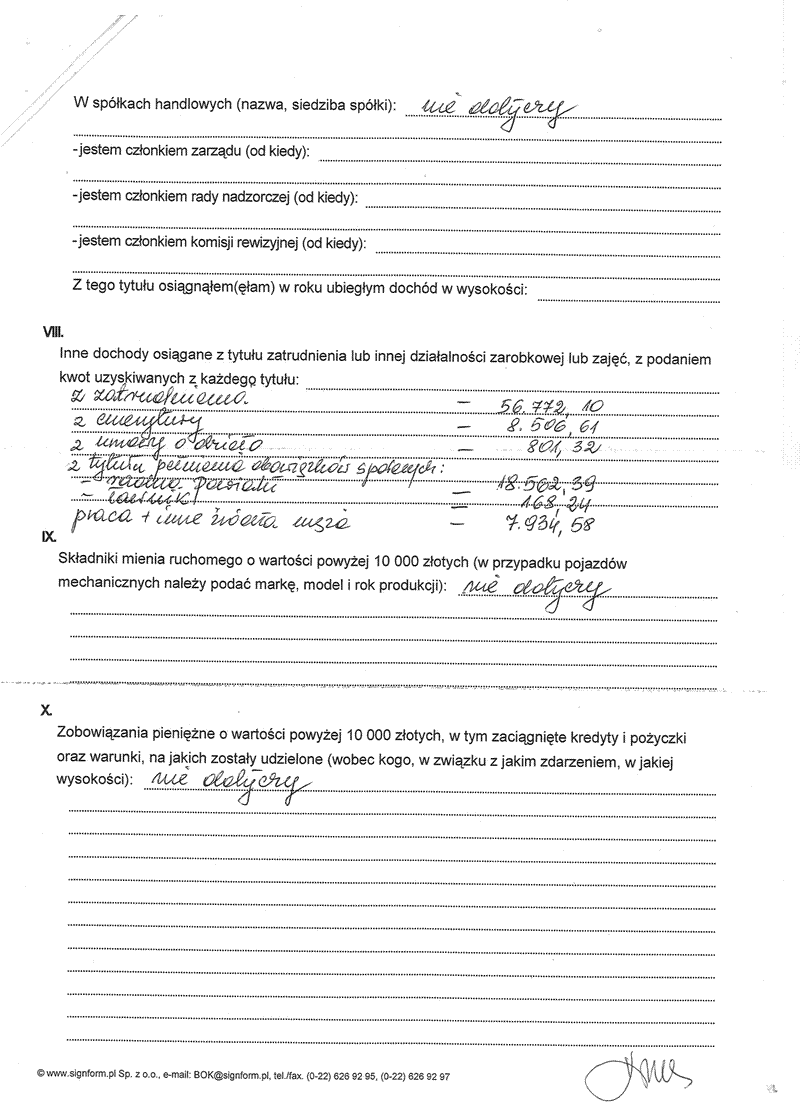 W spółkach handlowych (nazwa, siedziba spółki): nie dotyczy
-jestem członkiem zarządu (od kiedy):
-jestem członkiem rady nadzorczej (od kiedy):
-jestem członkiem komisji rewizyjnej (od kiedy):
Z tego tytułu osiągnąłem(ęłam) w roku ubiegłym dochód w wysokości:
VIII.
Inne dochody osiągane z tytułu zatrudnienia lub innej działalności zarobkowej lub zajęć, z podaniem
kwot uzyskiwanych z każdego tytułu:
z zatrudnienia – 56.772,10
z emerytury – 8.506,61
z umowy o dzieło – 801,32
z tytułu pełnienia obowiązków społecznych:
– radna powiatu – 18.562,39
– ławnik – 168,24
praca + inne źródła męża – 7.934,58
IX.
Składniki mienia ruchomego o wartości powyżej 10 000 złotych (w przypadku pojazdów
mechanicznych należy podać markę, model i rok produkcji): nie dotyczy
X.
Zobowiązania pieniężne o wartości powyżej 10 000 złotych, w tym zaciągnięte kredyty i pożyczki
oraz warunki, na jakich zostały udzielone (wobec kogo, w związku z jakim zdarzeniem, w jakiej
wysokości): nie dotyczy
© www.signform.pl Sp. z o.o., e-mail: BOK@signform.pl, tel./fax. (0-22) 626 92 95, (0-22) 626 92 97